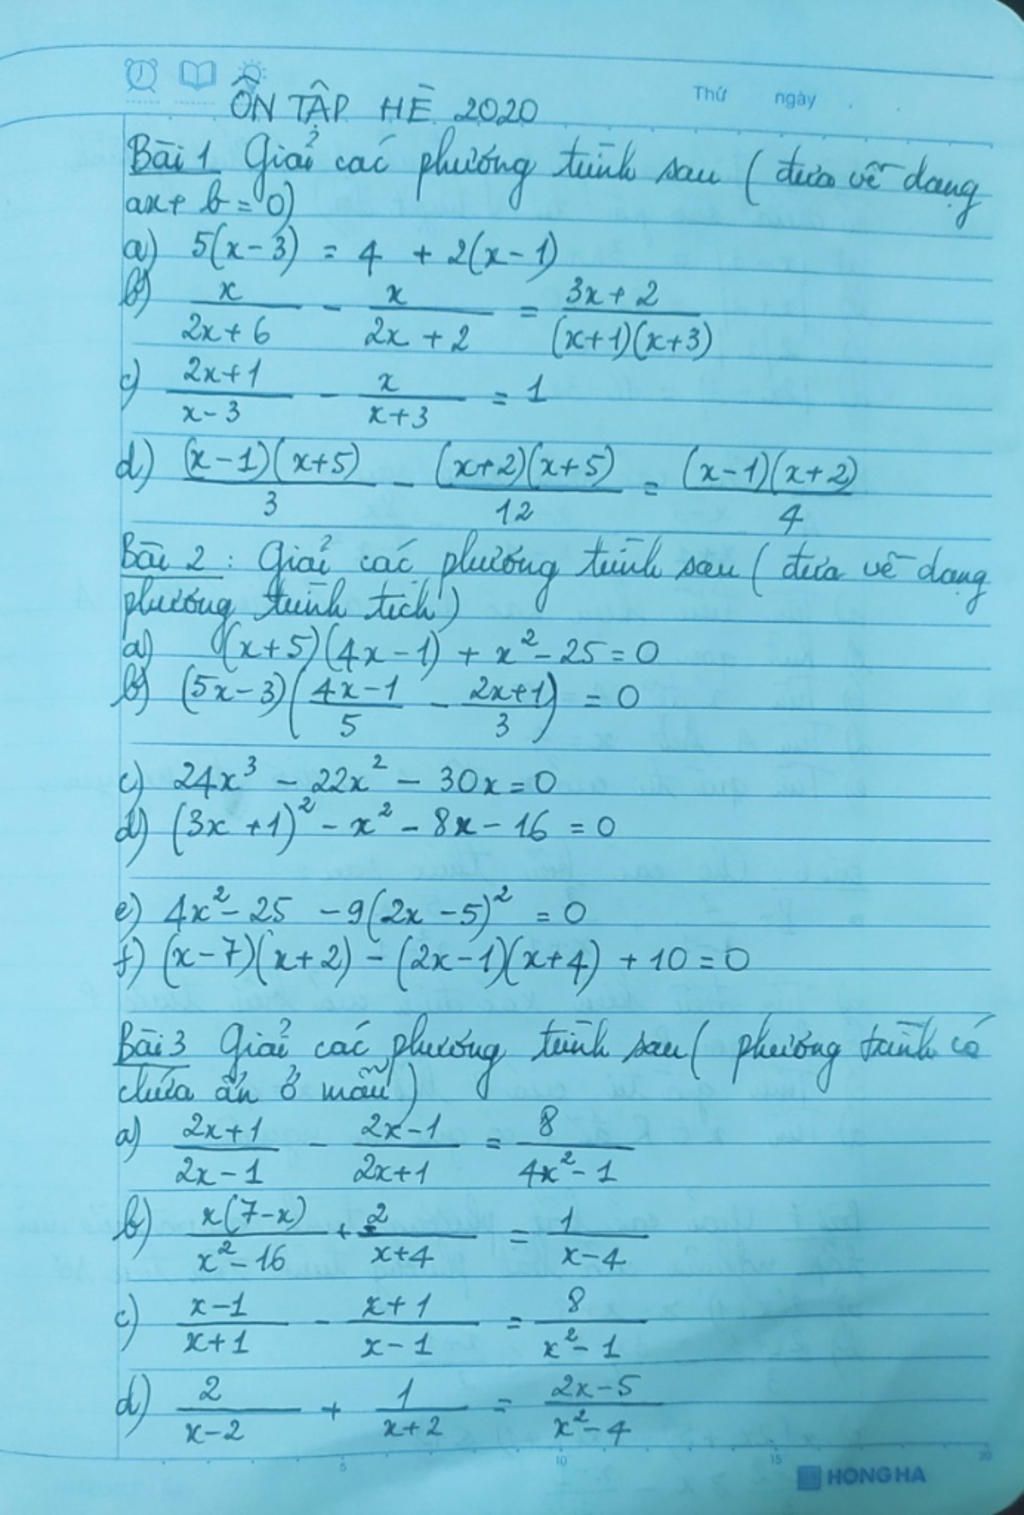 Thứ ngày
ÔN TẬP HÈ 2020
Bài 1 Giải các phương trình sau ( đưa về dạng
ax + b = 0)
a) 5(x-3) = 4 + 2(x-1)
b) x/(2x+6) - x/(2x+2) = (3x+2)/((x+1)(x+3))
c) (2x+1)/(x-3) - x/(x+3) = 1
d) (x-1)(x+5)/3 - (x+2)(x+5)/12 = (x-1)(x+2)/4
Bài 2 : Giải các phương trình sau ( đưa về dạng
phương trình tích)
a) (x+5)(4x-1) + x² - 25 = 0
b) (5x-3)((4x-1)/5 - (2x+1)/3) = 0
c) 24x³ - 22x² - 30x = 0
d) (3x+1)² - x² - 8x - 16 = 0
e) 4x² - 25 - 9(2x-5)² = 0
f) (x-7)(x+2) - (2x-1)(x+4) + 10 = 0
Bài 3 Giải các phương trình sau ( phương trình có
chứa ẩn ở mẫu)
a) (2x+1)/(2x-1) - (2x-1)/(2x+1) = 8/(4x²-1)
b) x(7-x)/(x²-16) + 2/(x+4) = 1/(x-4)
c) (x-1)/(x+1) - (x+1)/(x-1) = 8/(x²-1)
d) 2/(x-2) + 1/(x+2) = (2x-5)/(x²-4)
5 10 15 20
HONG HA